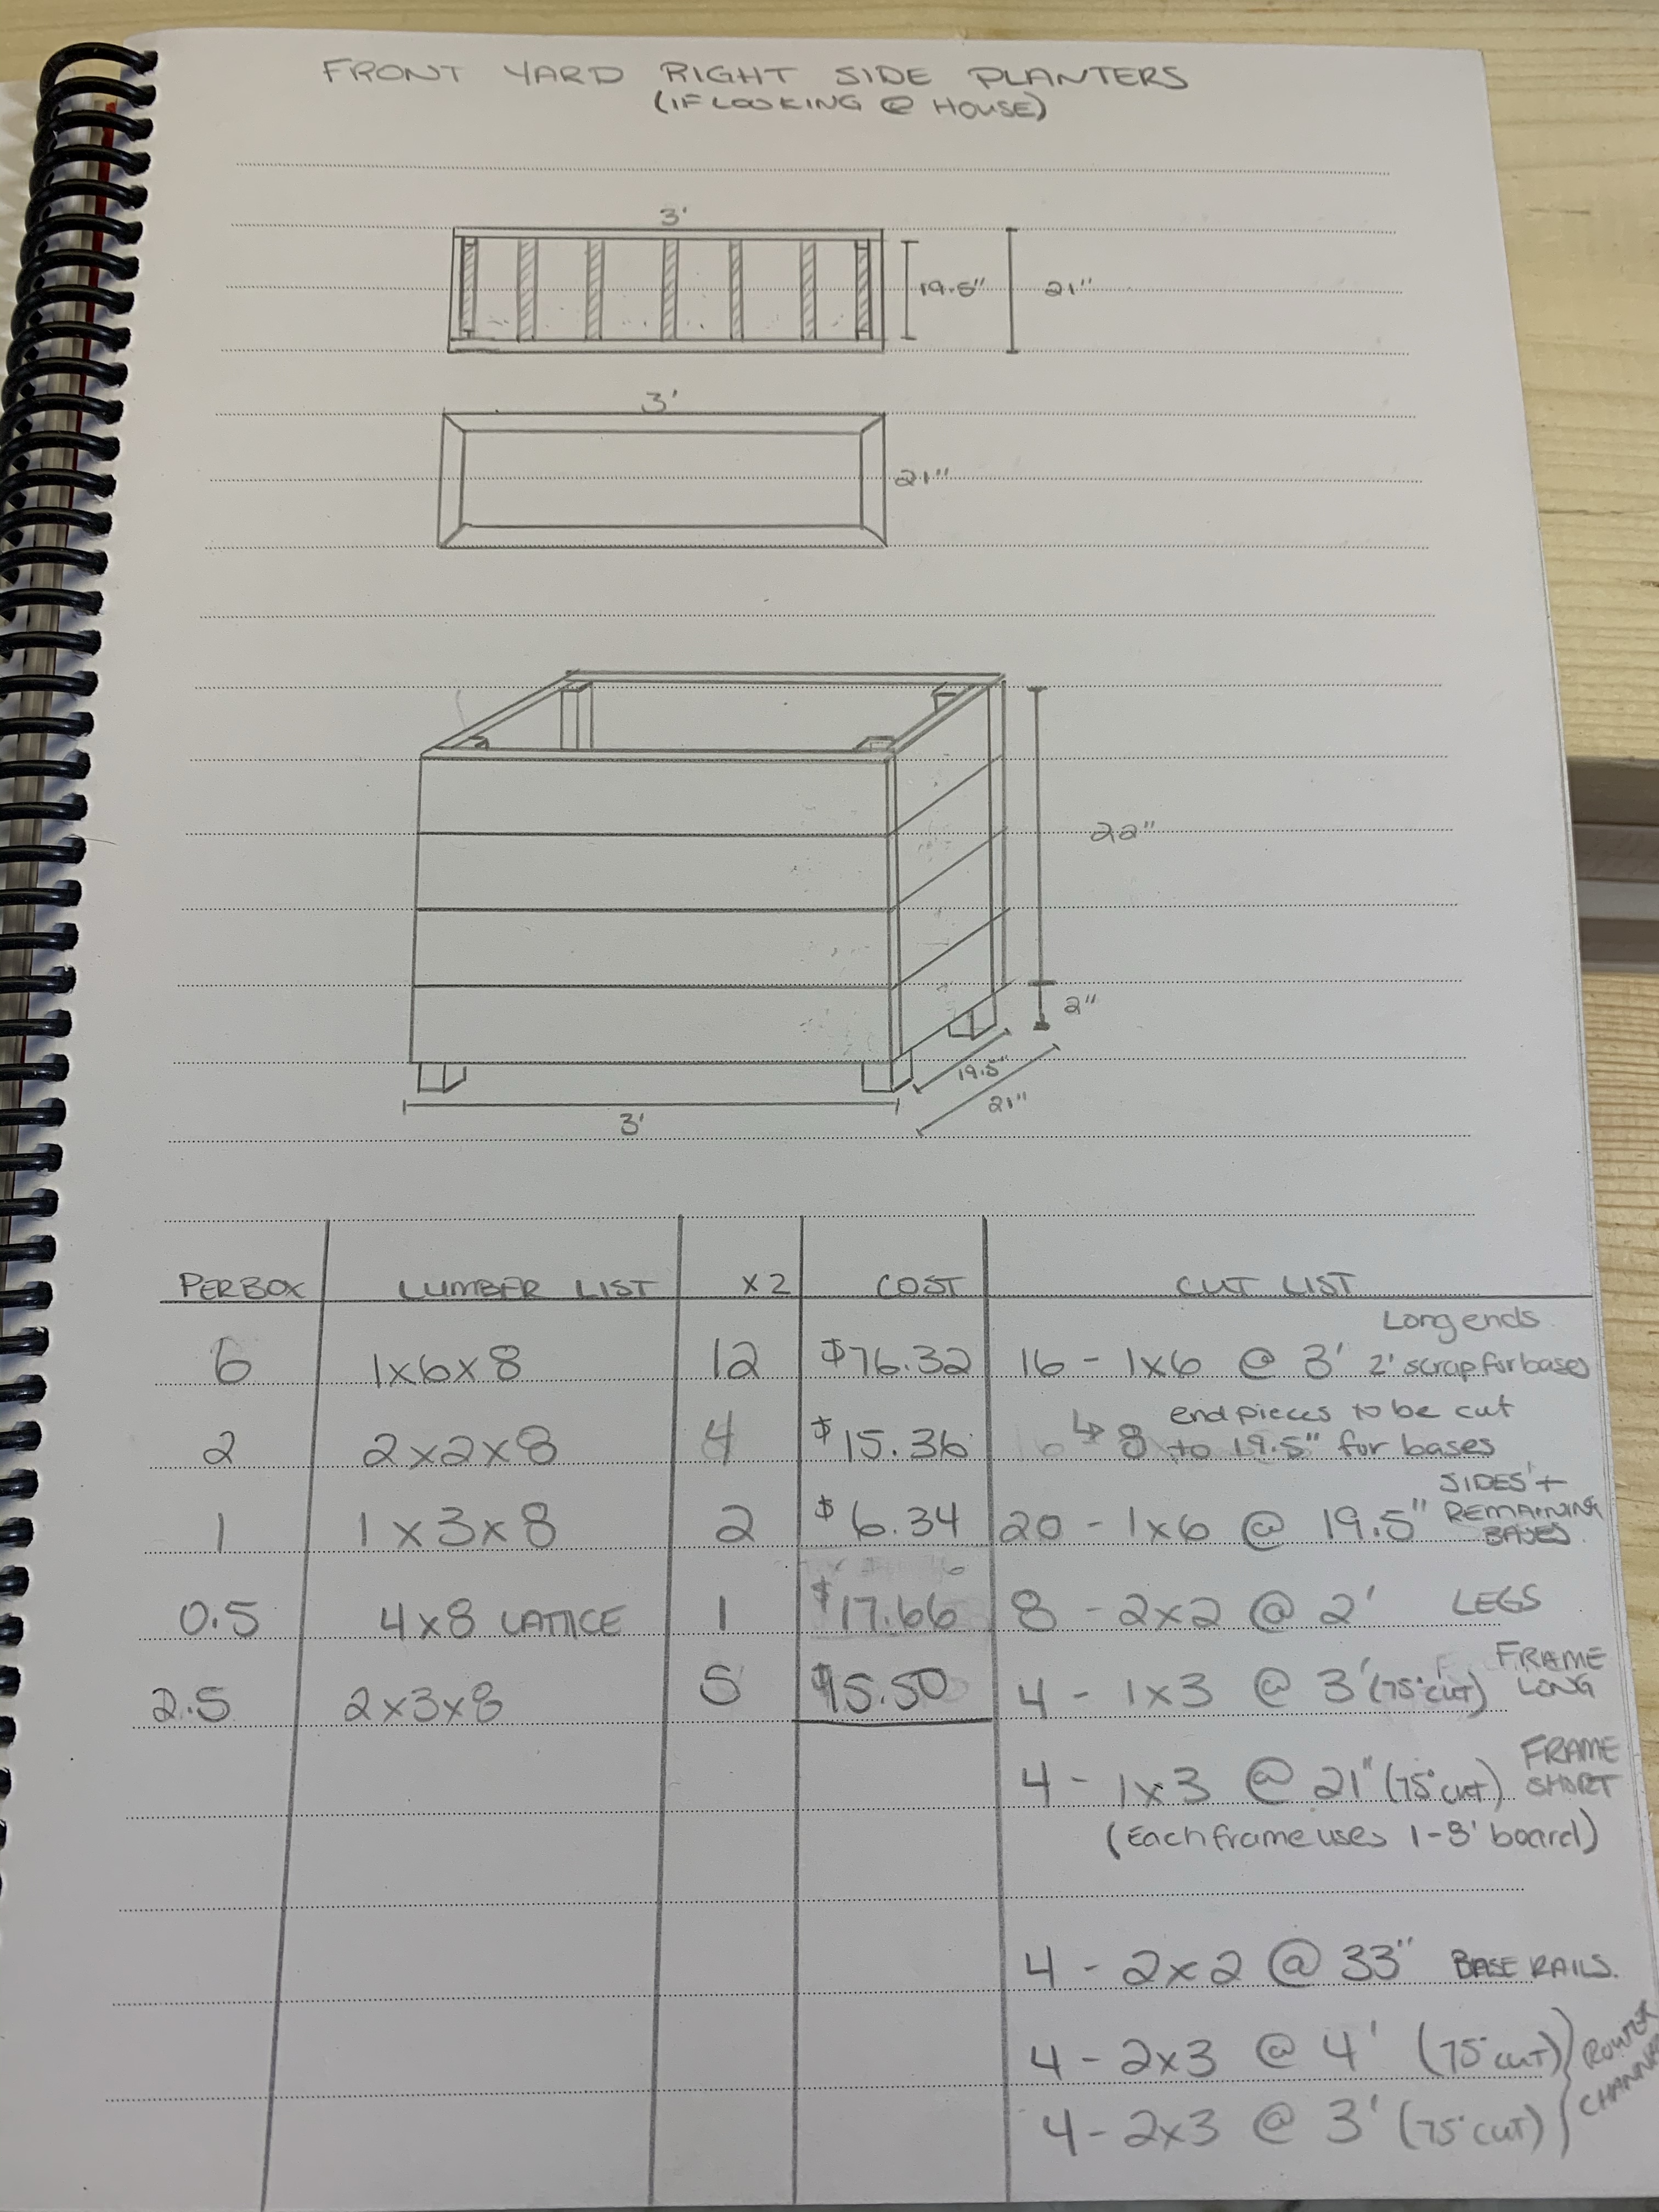 FRONT YARD RIGHT SIDE PLANTERS
(IF LOOKING @ HOUSE)
3'
19.5" 21"
3'
21"
22"
2"
19.5"
21"
3'
PER BOX LUMBER LIST X2 COST CUT LIST
Long ends
6 1x6x8 12 $76.32 16 - 1x6 @ 3' 2' scrap for bases
end pieces to be cut
2 2x2x8 4 $15.36 ↳ 8 to 19.5" for bases
SIDES +
1 1x3x8 2 $6.34 20 - 1x6 @ 19.5" REMAINING
BASES
0.5 4x8 LATTICE 1 $17.66 8 - 2x2 @ 2' LEGS
FRAME
2.5 2x3x8 5 15.50 4 - 1x3 @ 3' (75° CUT) LONG
FRAME
4 - 1x3 @ 21" (75° CUT) SHORT
(Each frame uses 1-8' board)
4 - 2x2 @ 33" BASE RAILS.
4 - 2x3 @ 4' (75° CUT) ROUTER
4 - 2x3 @ 3' (75° CUT)